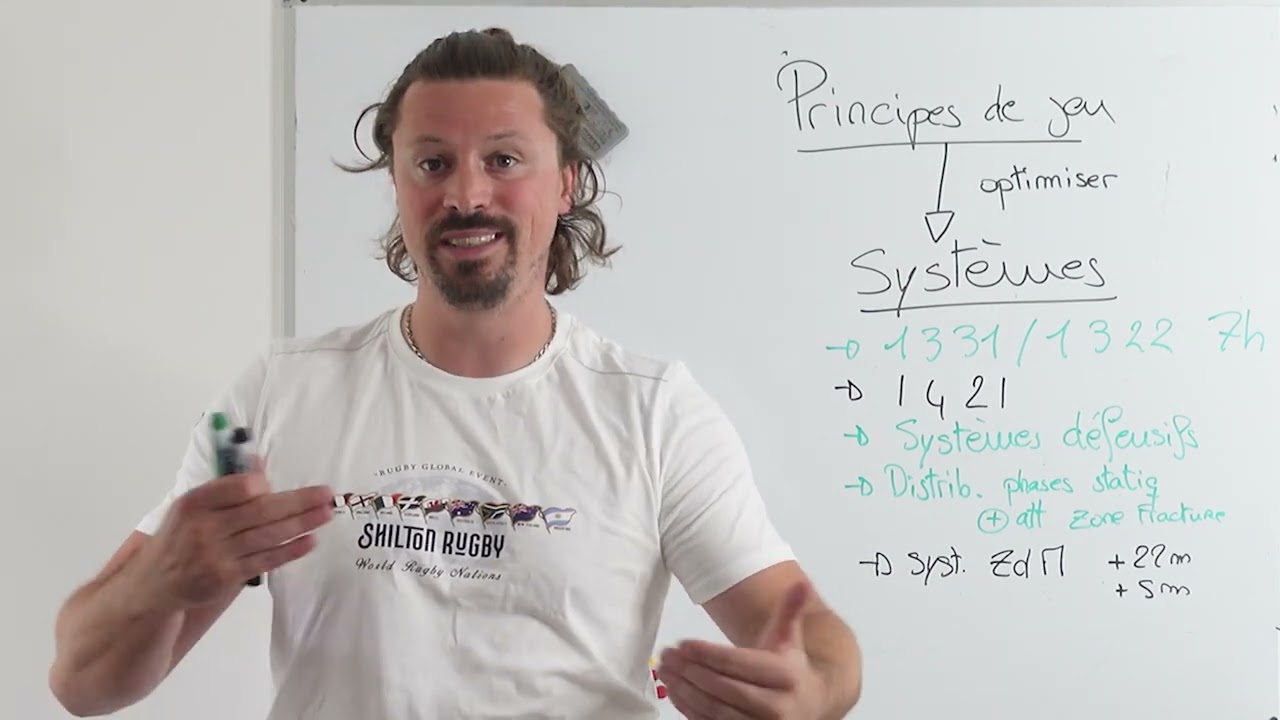 Principes de jeu
optimiser
Systèmes
1331/1322 7h
1421
Systèmes défensifs
Distrib. phases statiq
+ att Zone Fracture
syst. ZdM +22m
+5m
RUGBY GLOBAL EVENT
SHILTON RUGBY
World Rugby Nations